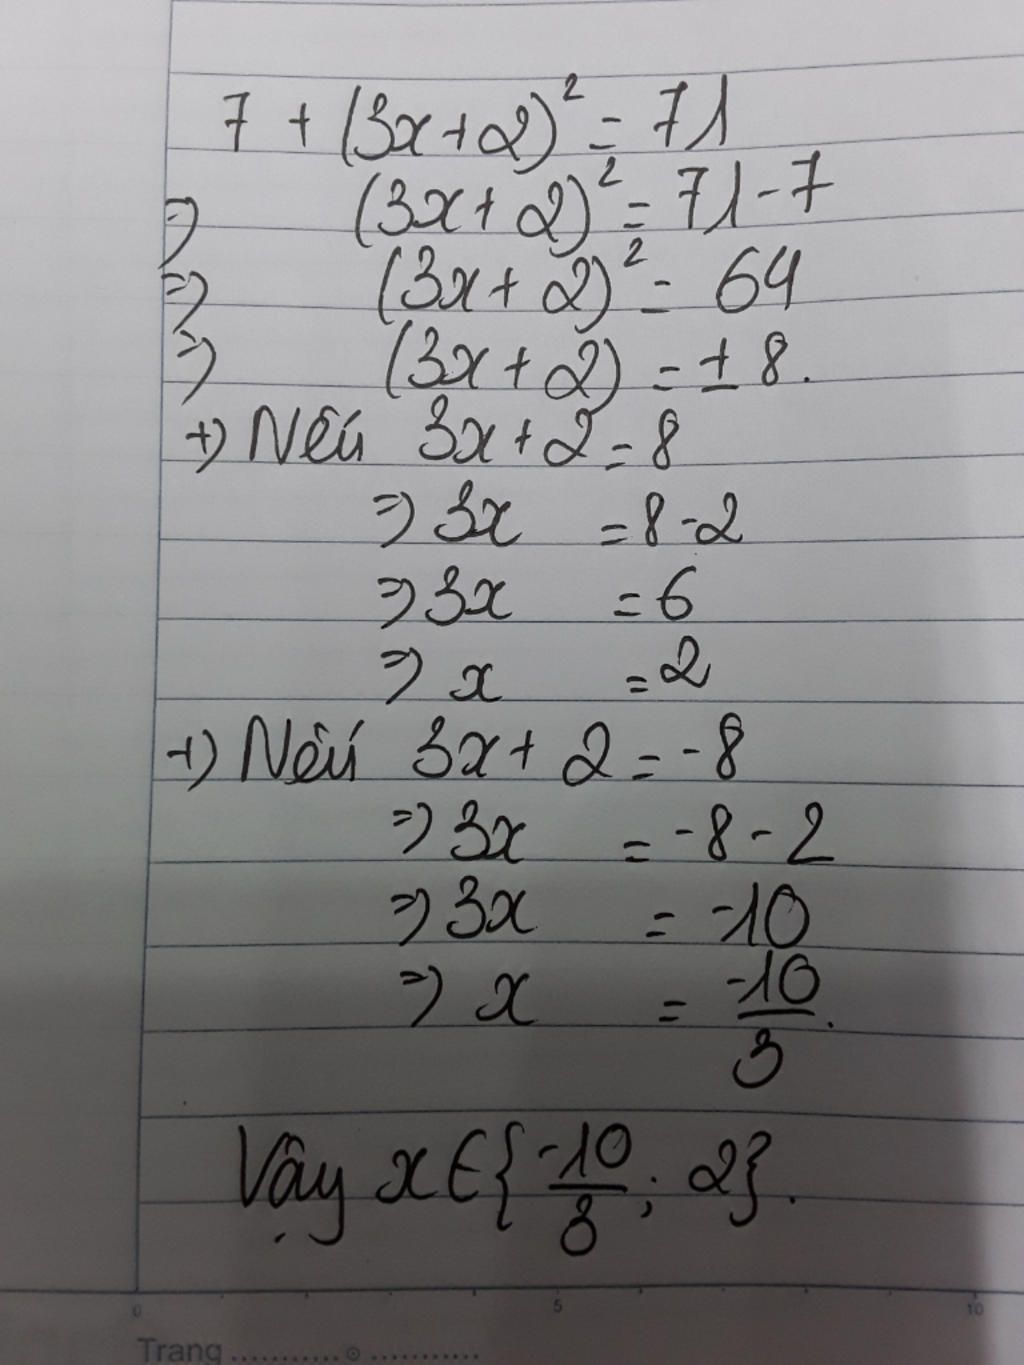 7 + (3x+2)² = 71
=> (3x+2)² = 71-7
=> (3x+2)² = 64
=> (3x+2) = ± 8.
+) Nếu 3x+2 = 8
=> 3x = 8-2
=> 3x = 6
=> x = 2
+) Nếu 3x+2 = -8
=> 3x = -8-2
=> 3x = -10
=> x = -10/3.
Vậy x∈{-10/3; 2}.
0 5 10
Trang ...........⊙...........